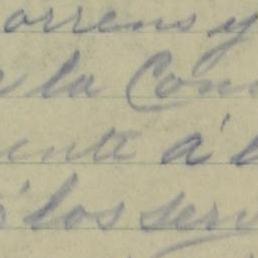 orrens y
la Con
ente á l
á los serv